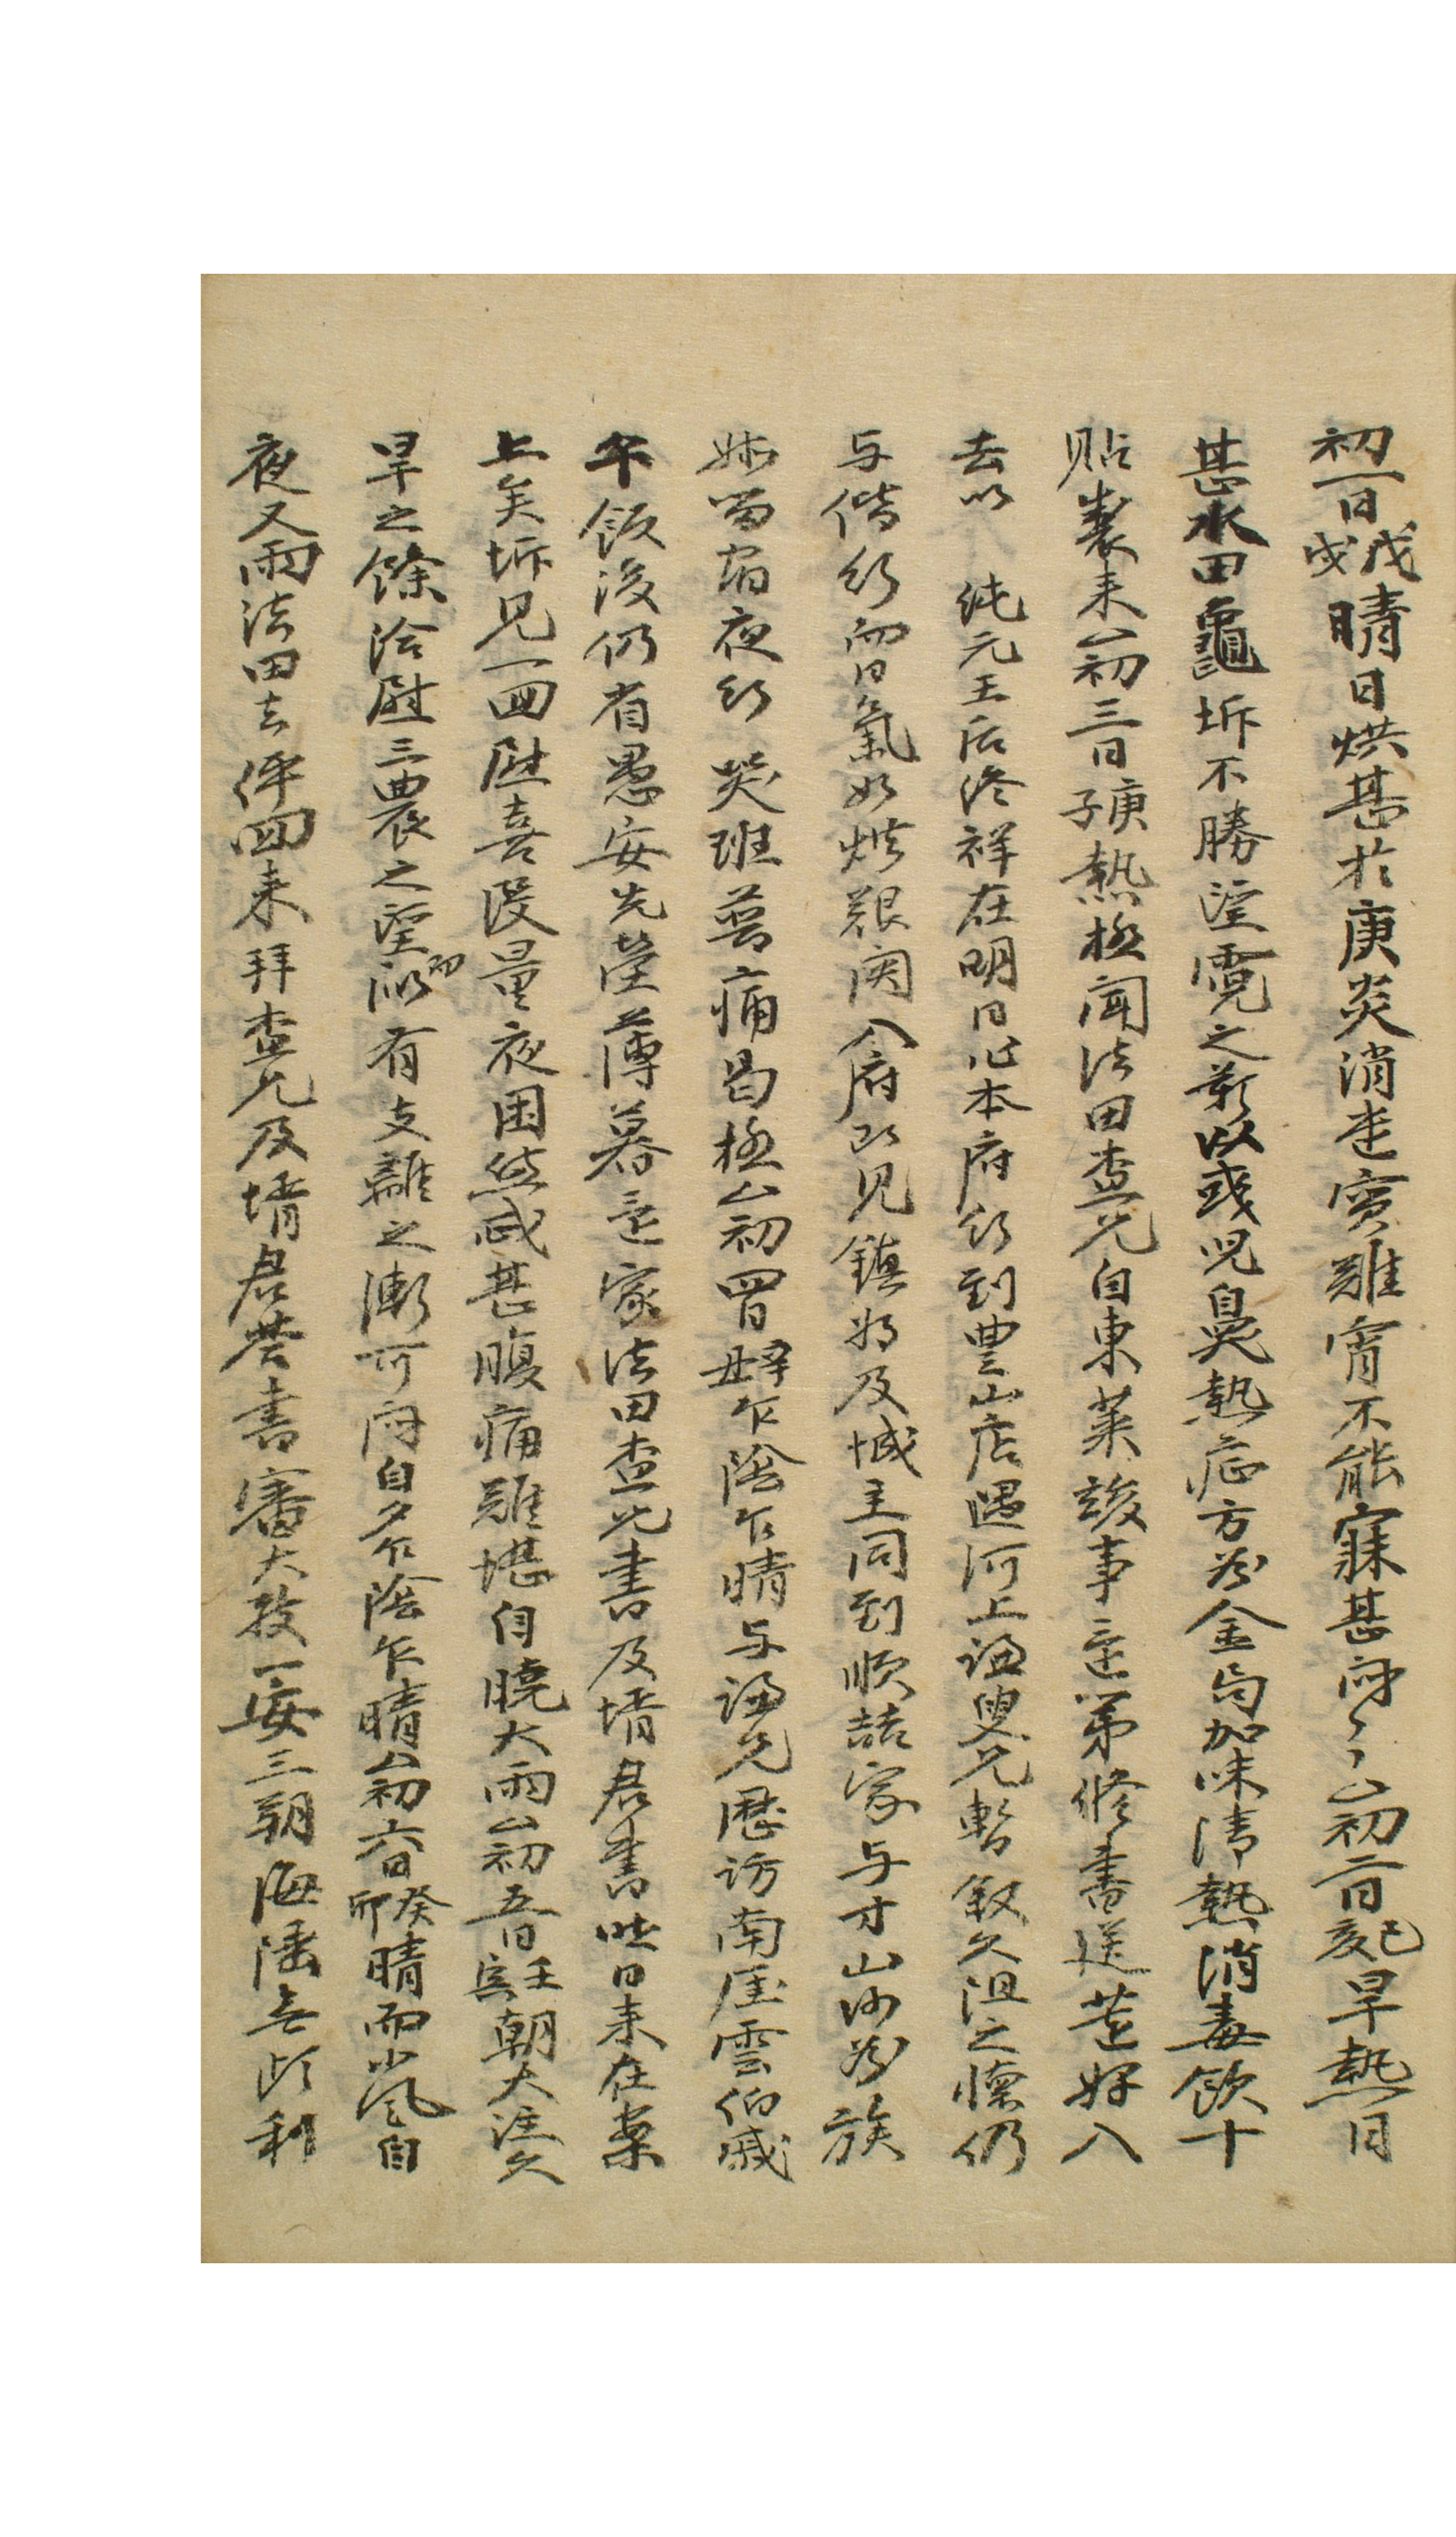 初一日戊戌晴日烘甚於庚炎消遣實難宵不能寐甚悶〃△初二日己亥旱熱日
甚水田龜坼不勝望霓之歎以彧児鼻熱症方為金匀加味清熱消毒飮十
貼製来△初三日庚子熱極聞法田査兄自東萊竣事還第修書送莖姪入
去以 純元王后終祥在明日作本府行到豊山店遇河上諡叟兄暫敍久阻之懷仍
与偕行而日氣如烘艱関入府以見鎭將及城主同到順喆家与寸山浴為族
姊留宿夜行 哭班蓦痛曷極△初四日辛丑乍陰乍晴与諡兄歷訪南厓雲伯戚
午飯後仍省愚安先塋薄暮還家法田査兄書及壻君書昨日来在案
上矣坼見一回慰喜沒量夜困憊感甚腹痛難堪自曉大雨△初五日壬寅朝大注久
旱之餘洽慰三農之望而似有支離之漸可悶自夕乍陰乍晴△初六日癸卯晴而嵐自
夜又雨法田去伻回来拜査兄及壻君答書審大孜一安三朝海潘無頉利